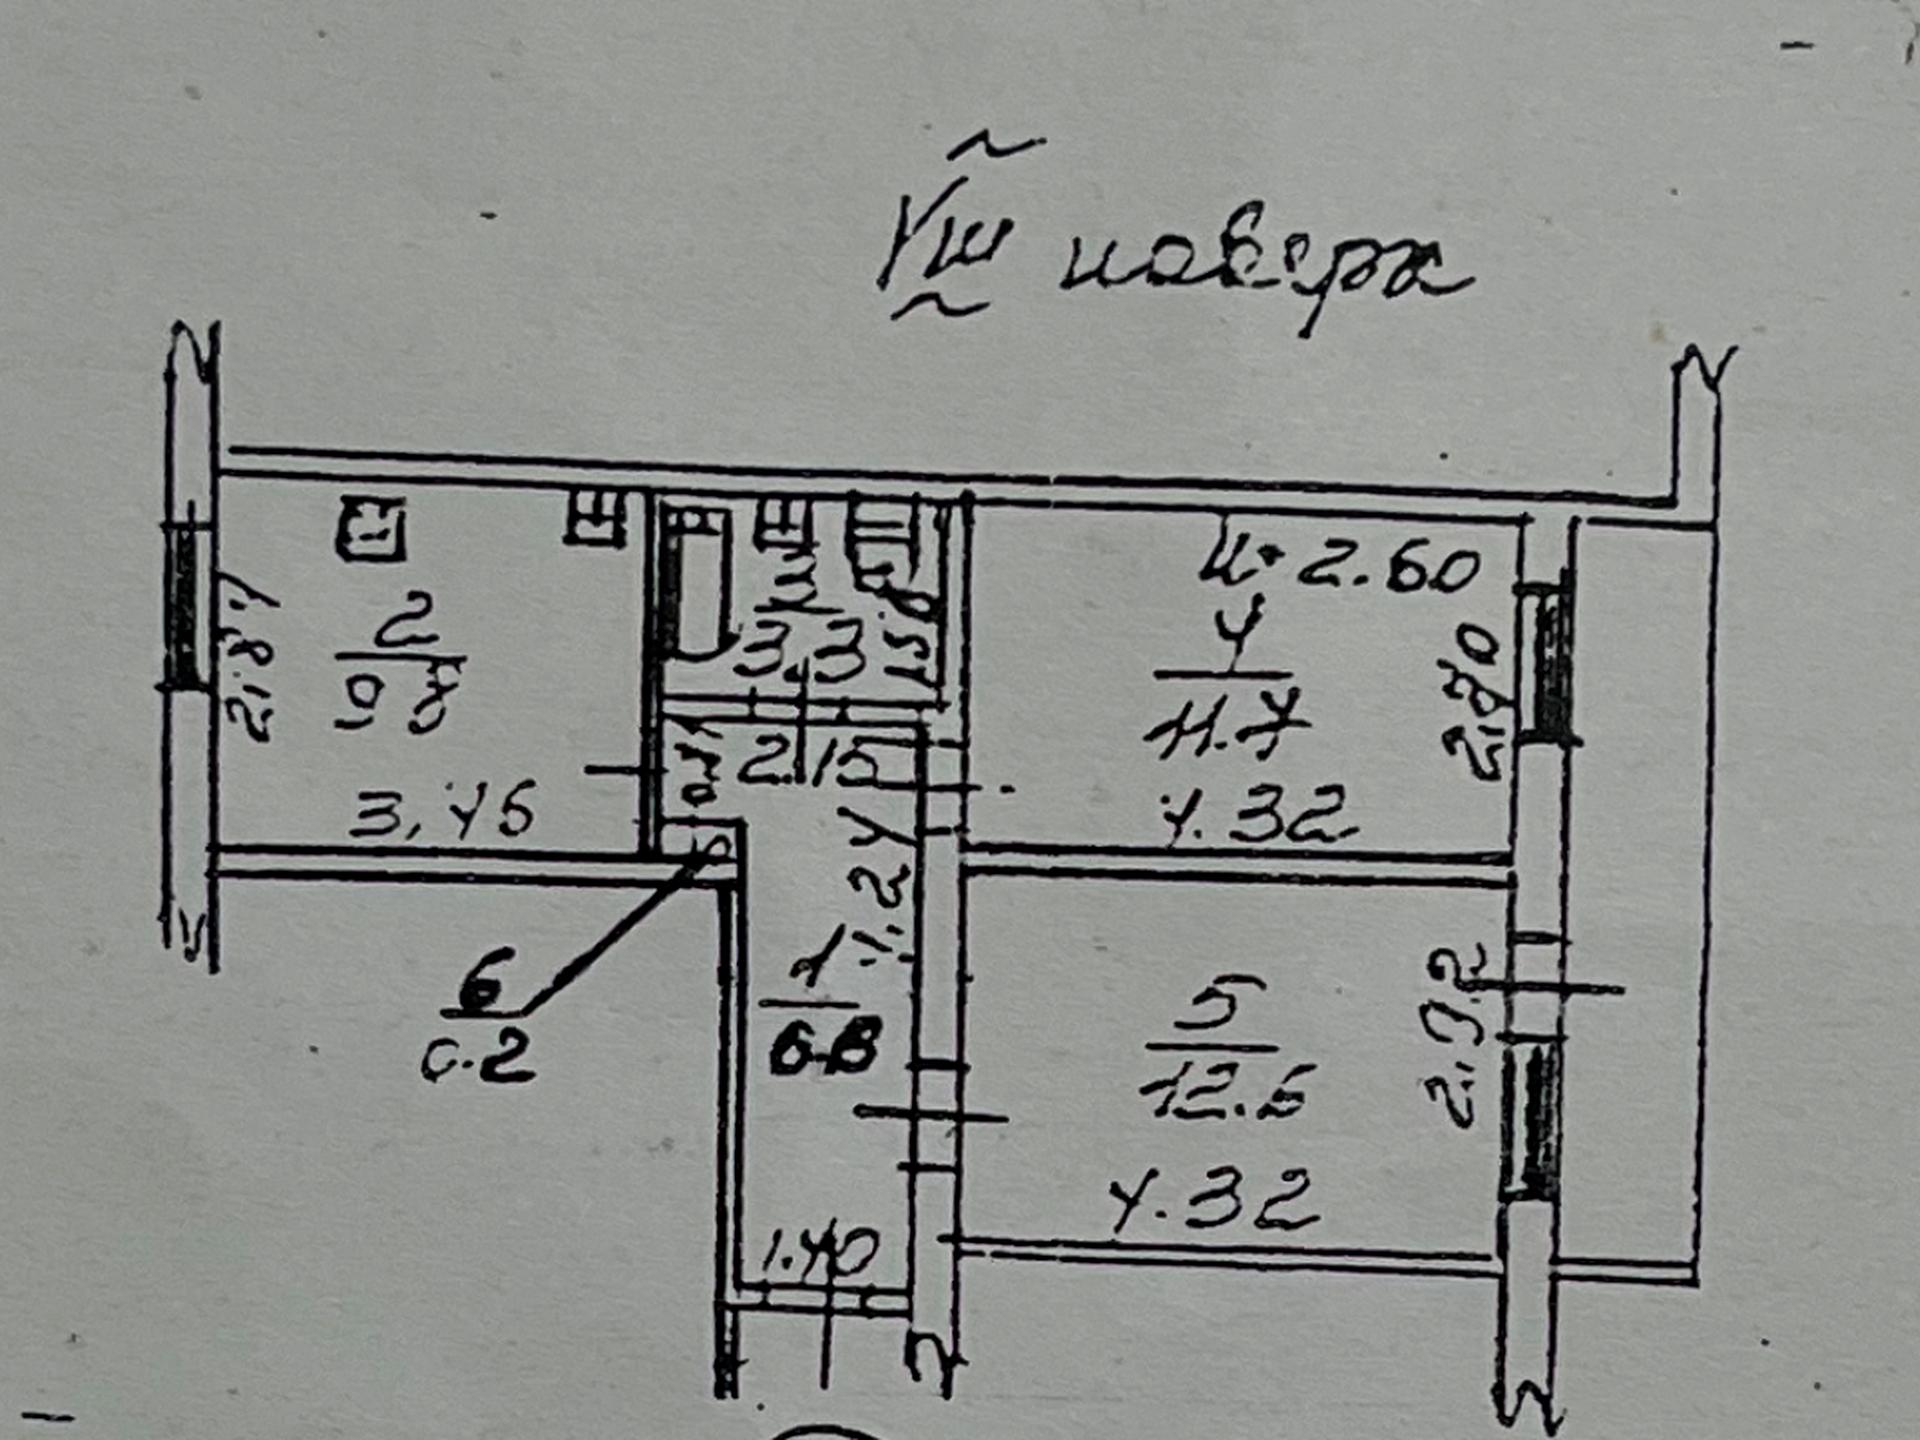 VIII поверх
h=2.60
2
9.8
2.87
3.45
3
3.3
1.58
2.15
4
11.7
2.70
4.32
1
6.8
1.24
1.40
5
12.6
2.92
4.32
6
0.2